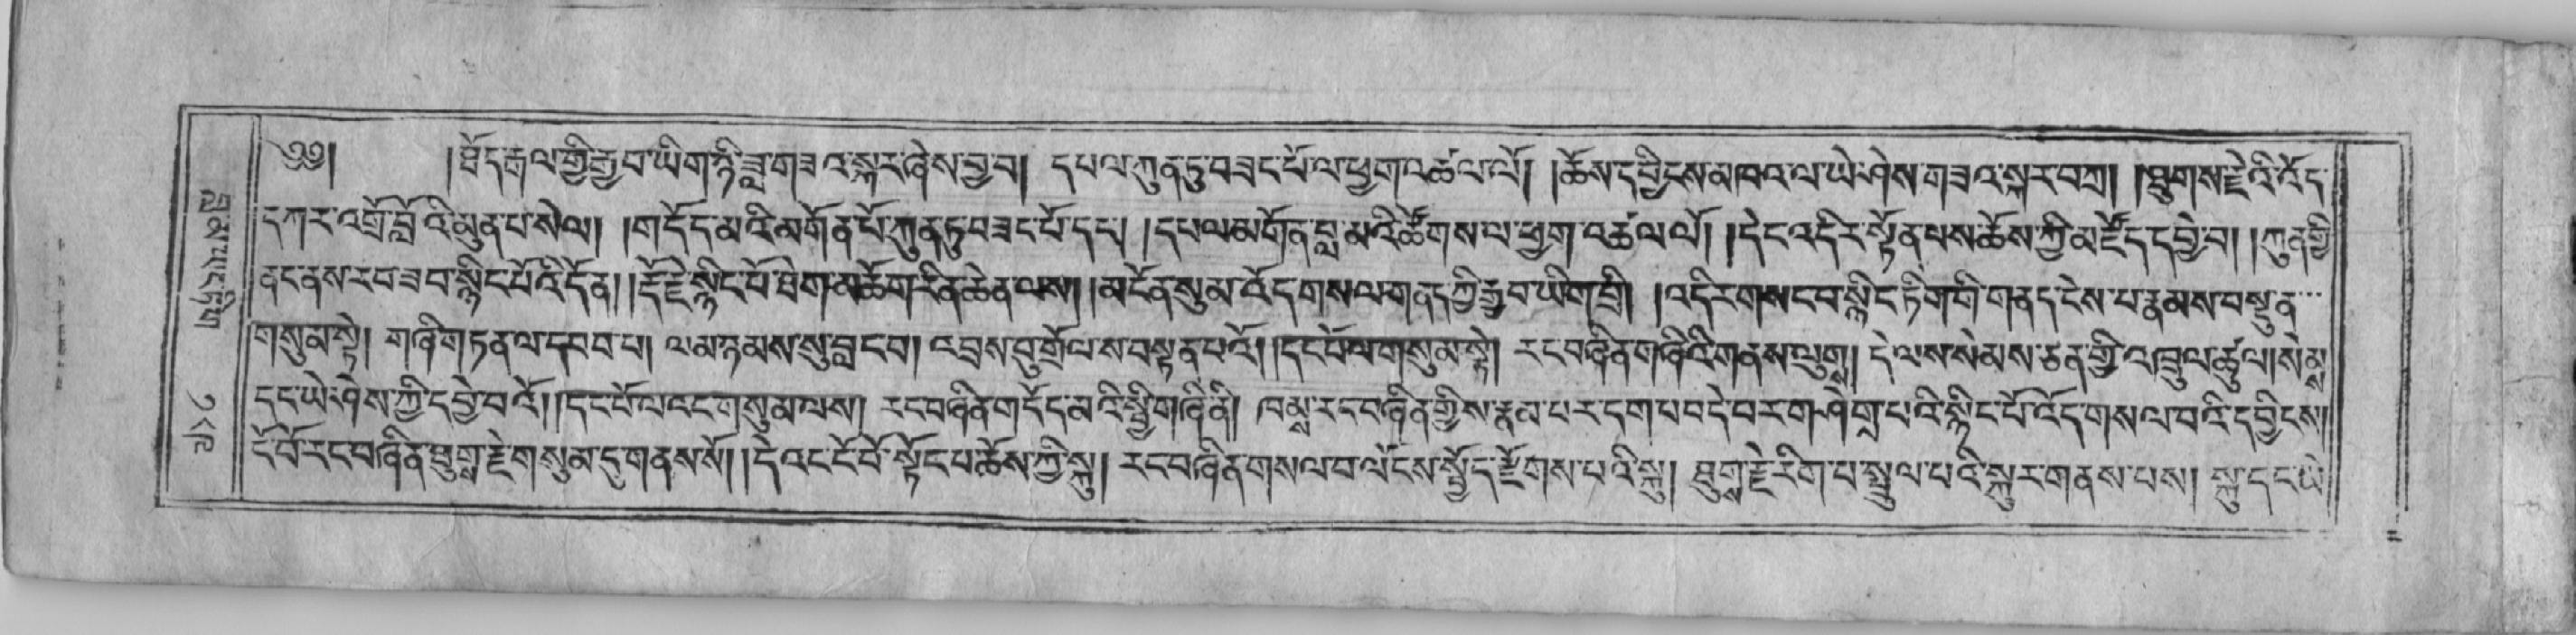 ༄༅། །ཐོད་རྒལ་གྱི་རྒྱབ་ཡིག་ཉི་ཟླ་གཟའ་སྐར་ཞེས་བྱ་བ། དཔལ་ཀུན་ཏུ་བཟང་པོ་ལ་ཕྱག་འཚལ་ལོ། །ཆོས་དབྱིངས་མཁའ་ལ་ཡེ་ཤེས་གཟའ་སྐར་བཀྲ། །ཐུགས་རྗེའི་འོད་
དཀར་འགྲོ་བློའི་མུན་པ་སེལ། །གདོད་མའི་མགོན་པོ་ཀུན་ཏུ་བཟང་པོ་དང༌། །དཔལ་མགོན་བླ་མའི་ཚོགས་ལ་ཕྱག་འཚལ་ལོ། །དེང་འདིར་སྟོན་པས་ཆོས་ཀྱི་མཛོད་དབྱེ་བ། །ཀུན་གྱི་
ནང་ནས་རབ་ཟབ་སྙིང་པོའི་དོན། །རྡོ་རྗེ་སྙིང་པོ་ཐེག་མཆོག་རིན་ཆེན་ལས། །མངོན་སུམ་འོད་གསལ་གནད་ཀྱི་རྒྱབ་ཡིག་བྲི། །འདིར་གསང་བ་སྙིང་ཏིག་གི་གནད་ངེས་པ་རྣམས་བསྟན་
གསུམ་སྟེ། གཞི་གཏན་ལ་དབབ་པ། ལམ་ཉམས་སུ་བླང་བ། འབྲས་བུ་གྲོལ་ས་བསྟན་པའོ། །དང་པོ་ལ་གསུམ་སྟེ། རང་བཞིན་གཞིའི་གནས་ལུགས། དེ་ལས་སེམས་ཅན་གྱི་འཁྲུལ་ཚུལ། སེམས་
དང་ཡེ་ཤེས་ཀྱི་དབྱེ་བའོ། །དང་པོ་ལའང་གསུམ་ལས། རང་བཞིན་གདོད་མའི་སྤྱི་གཞི་ནི། ཁམས་རང་བཞིན་གྱིས་རྣམ་པར་དག་པ་བདེ་བར་གཤེགས་པའི་སྙིང་པོ་འོད་གསལ་བའི་དབྱིངས།
ངོ་བོ་རང་བཞིན་ཐུགས་རྗེ་གསུམ་དུ་གནས་སོ། །དེ་འང་ངོ་བོ་སྟོང་པ་ཆོས་ཀྱི་སྐུ། རང་བཞིན་གསལ་བ་ལོངས་སྤྱོད་རྫོགས་པའི་སྐུ། ཐུགས་རྗེ་རིག་པ་སྤྲུལ་པའི་སྐུར་གནས་པས། སྐུ་དང་ཡེ་